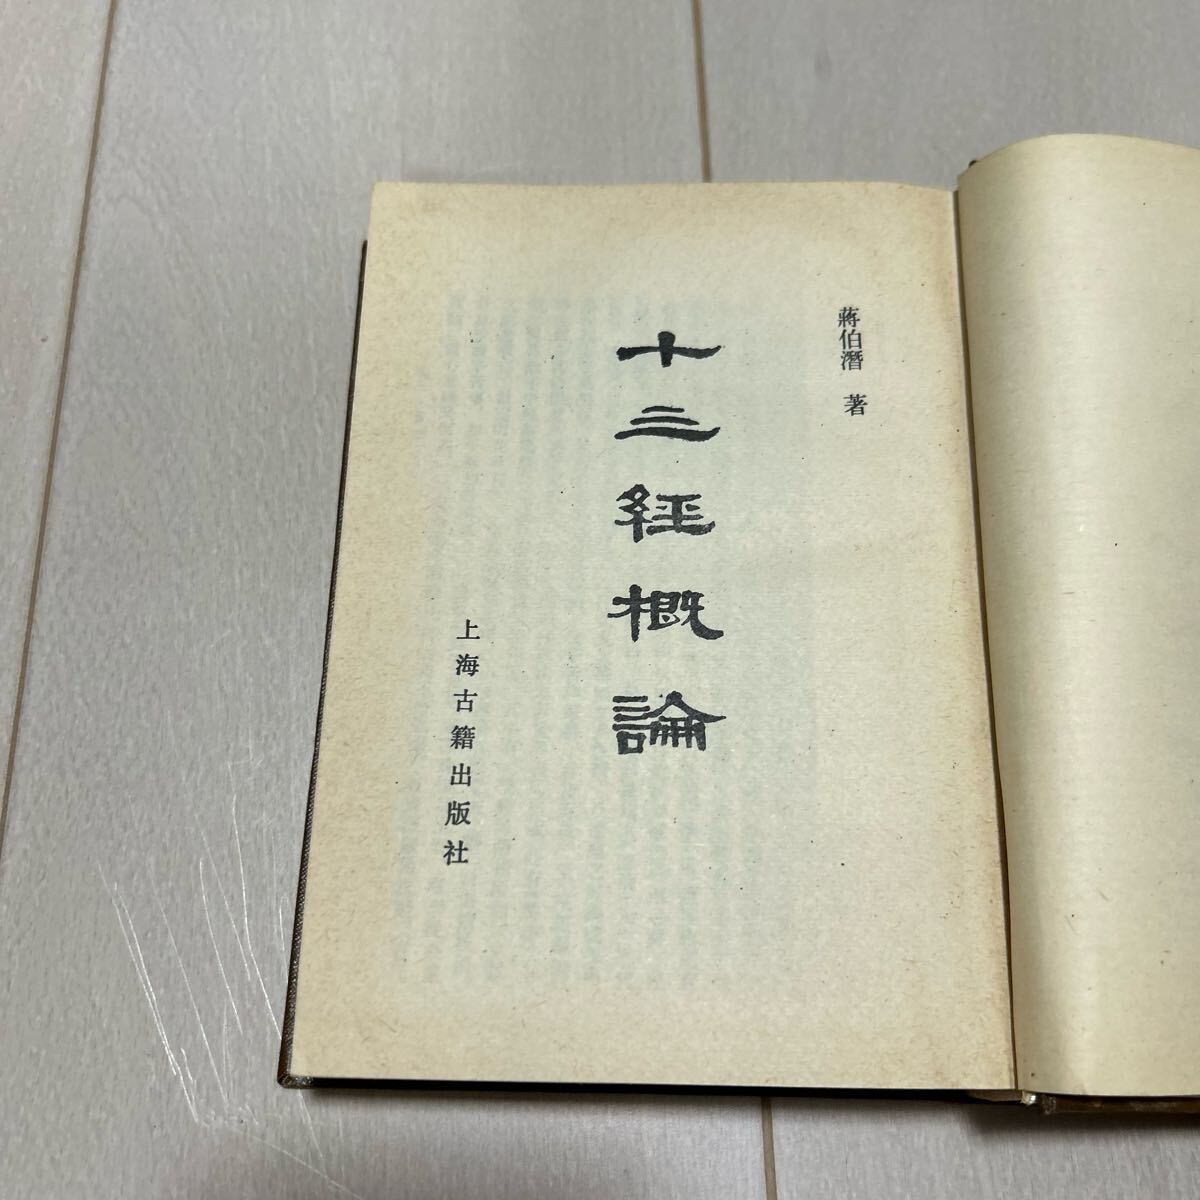 蔣伯潛 著
十三經概論
上海古籍出版社